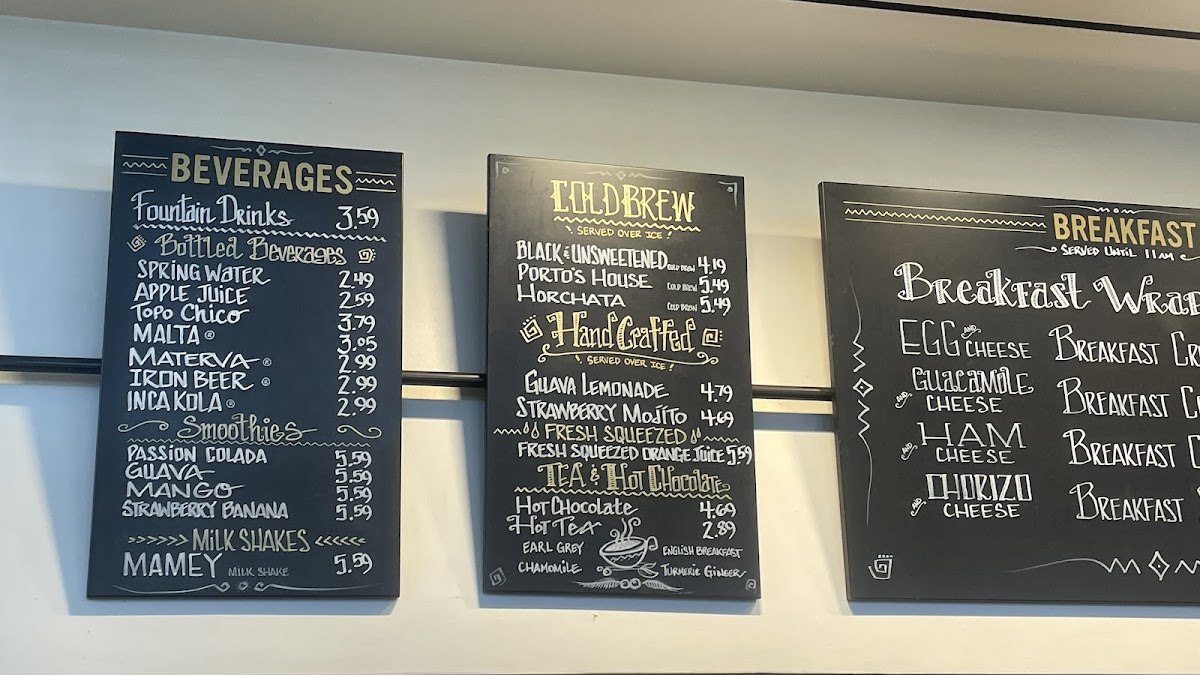 BEVERAGES
Fountain Drinks 3.59
Bottled Beverages
SPRING WATER 2.49
APPLE JUICE 2.59
TOPO CHICO 3.79
MALTA ® 3.05
MATERVA ® 2.99
IRON BEER ® 2.99
INCA KOLA ® 2.99
Smoothies
PASSION COLADA 5.59
GUAVA 5.59
MANGO 5.59
STRAWBERRY BANANA 5.59
MILK SHAKES
MAMEY MILK SHAKE 5.59
COLD BREW
SERVED OVER ICE!
BLACK & UNSWEETENED COLD BREW 4.19
PORTO'S HOUSE COLD BREW 5.49
HORCHATA COLD BREW 5.49
Hand Crafted
SERVED OVER ICE!
GUAVA LEMONADE 4.79
STRAWBERRY MOJITO 4.69
FRESH SQUEEZED
FRESH SQUEEZED ORANGE JUICE 5.59
TEA & HOT CHOCOLATE
HOT CHOCOLATE 4.69
HOT TEA 2.89
EARL GREY ENGLISH BREAKFAST
CHAMOMILE TURMERIC GINGER
BREAKFAST
SERVED UNTIL 11AM
Breakfast Wra
EGG AND CHEESE BREAKFAST CR
GUACAMOLE AND CHEESE BREAKFAST C
HAM AND CHEESE BREAKFAST C
CHORIZO AND CHEESE BREAKFAST